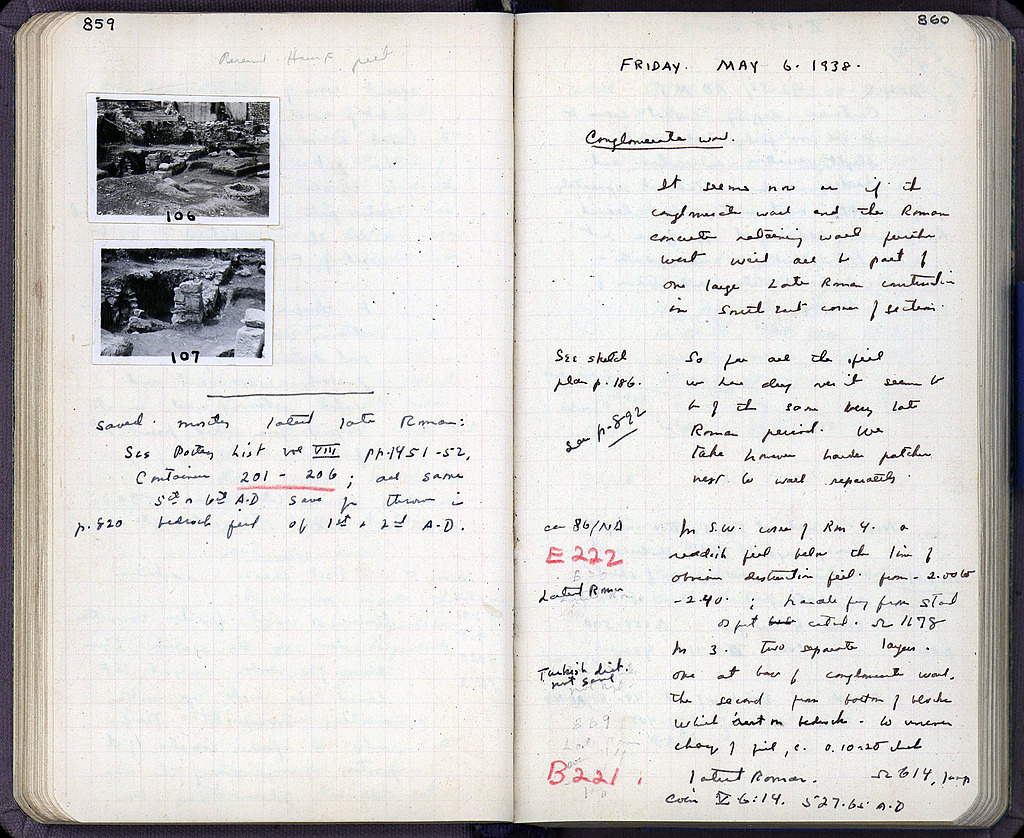 859
106
107
Saved. mostly latest late Roman:
See Pottery List vol VIII pp. 1451-52,
Container 201 - 206; all same
5th & 6th A.D save for thrown in
p. 820 bedrock fill of 1st & 2nd A.D.
860
FRIDAY. MAY 6. 1938.
Conglomerate wall.
It seems now as if the
conglomerate wall and the Roman
concrete retaining wall further
west will all be part of
one large Late Roman construction
in South East corner of section.
See sketch
plan p. 186.
see p. 892
So far all the fill
we have dug over it seem to
be of the same very late
Roman period. We
take however harder patches
next to wall separately.
ca 86/ΝΔ
E 222
Latest Roman
In S.W. corner of Rm 4. a
reddish fill below the line of
obvious destruction fill. from -2.00 to
-2.40. ; handle from
In 3. two separate layers.
Turkish dist.
not saved
one at back of conglomerate wall.
the second from bottom of blocks
which rest on bedrock. to uneven
869
B 221.
latest Roman. Ω 614, lamp
coin V 6:14. 527-65 A.D